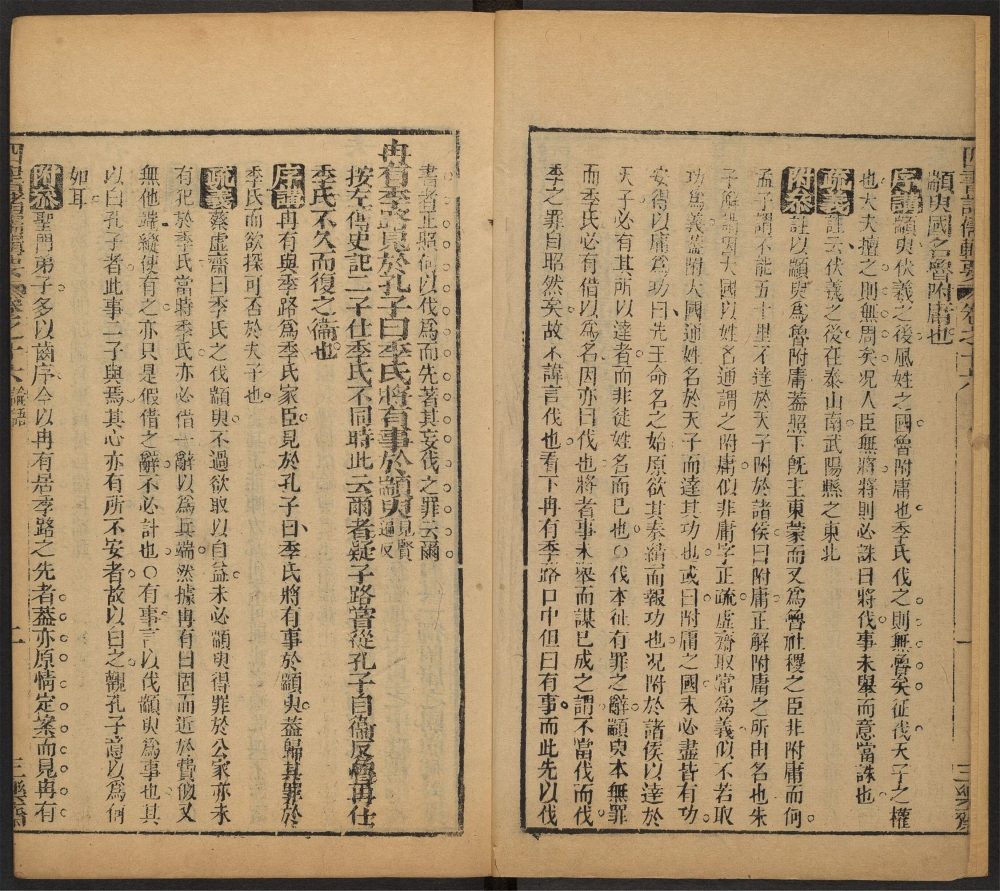 四書記備輯要 卷之十六
顓臾國名魯附庸也
序講顓臾伏羲之後風姓之國魯附庸也季氏伐之則無魯矣征伐天子之權
也大夫擅之則無周矣况人臣無將將則必誅曰將伐事未舉而意當誅也
疏義註云伏羲之後在泰山南武陽縣之東北
附參註以顓臾爲魯附庸蓋照下旣主東蒙而又爲魯社稷之臣非附庸而何
孟子謂不能五十里不達於天子附於諸侯曰附庸正解附庸之所由名也朱
子解謂因大國以姓名通謂之附庸似非庸字正疏虛齋取常爲義似不若取
功爲義蓋附大國通姓名於天子而達其功也或曰附庸之國未必盡皆有功
安得以庸爲功曰先王命名之始原欲其奏績而報功也况附於諸侯以達於
天子必有其所以達者而非徒姓名而已也○伐本征有罪之辭顓臾本無罪
而季氏必有借以爲名因亦曰伐也將者事未舉而謀已成之謂不當伐而伐
季之罪自昭然矣故不諱言伐也看下冉有季路口中但曰有事而此先以伐
一
三樂齋
書者正照何以伐爲而先著其妄伐之罪云爾
冉有季路見於孔子曰季氏將有事於顓臾見賢遍反
按左傳史記二子仕季氏不同時此云爾者疑子路嘗從孔子自衞反魯再仕
季氏不久而復之衞也
序講冉有與季路爲季氏家臣見於孔子曰季氏將有事於顓臾蓋歸其罪於
季氏而欲探可否於夫子也
疏義蔡虛齋曰季氏之伐顓臾不過欲取以自益未必顓臾得罪於公家亦未
有犯於季氏當時季氏亦必借一辭以爲兵端然據冉有曰固而近於費似又
無他端縱使有之亦只是假借之辭不必計也○有事言以伐顓臾爲事也其
以白孔子者此事二子與焉其心亦有所不安者故以白之觀孔子意以爲何
如耳
附參聖門弟子多以齒序今以冉有居季路之先者蓋亦原情定案而見冉有
卷之十六 論語
二
三樂齋